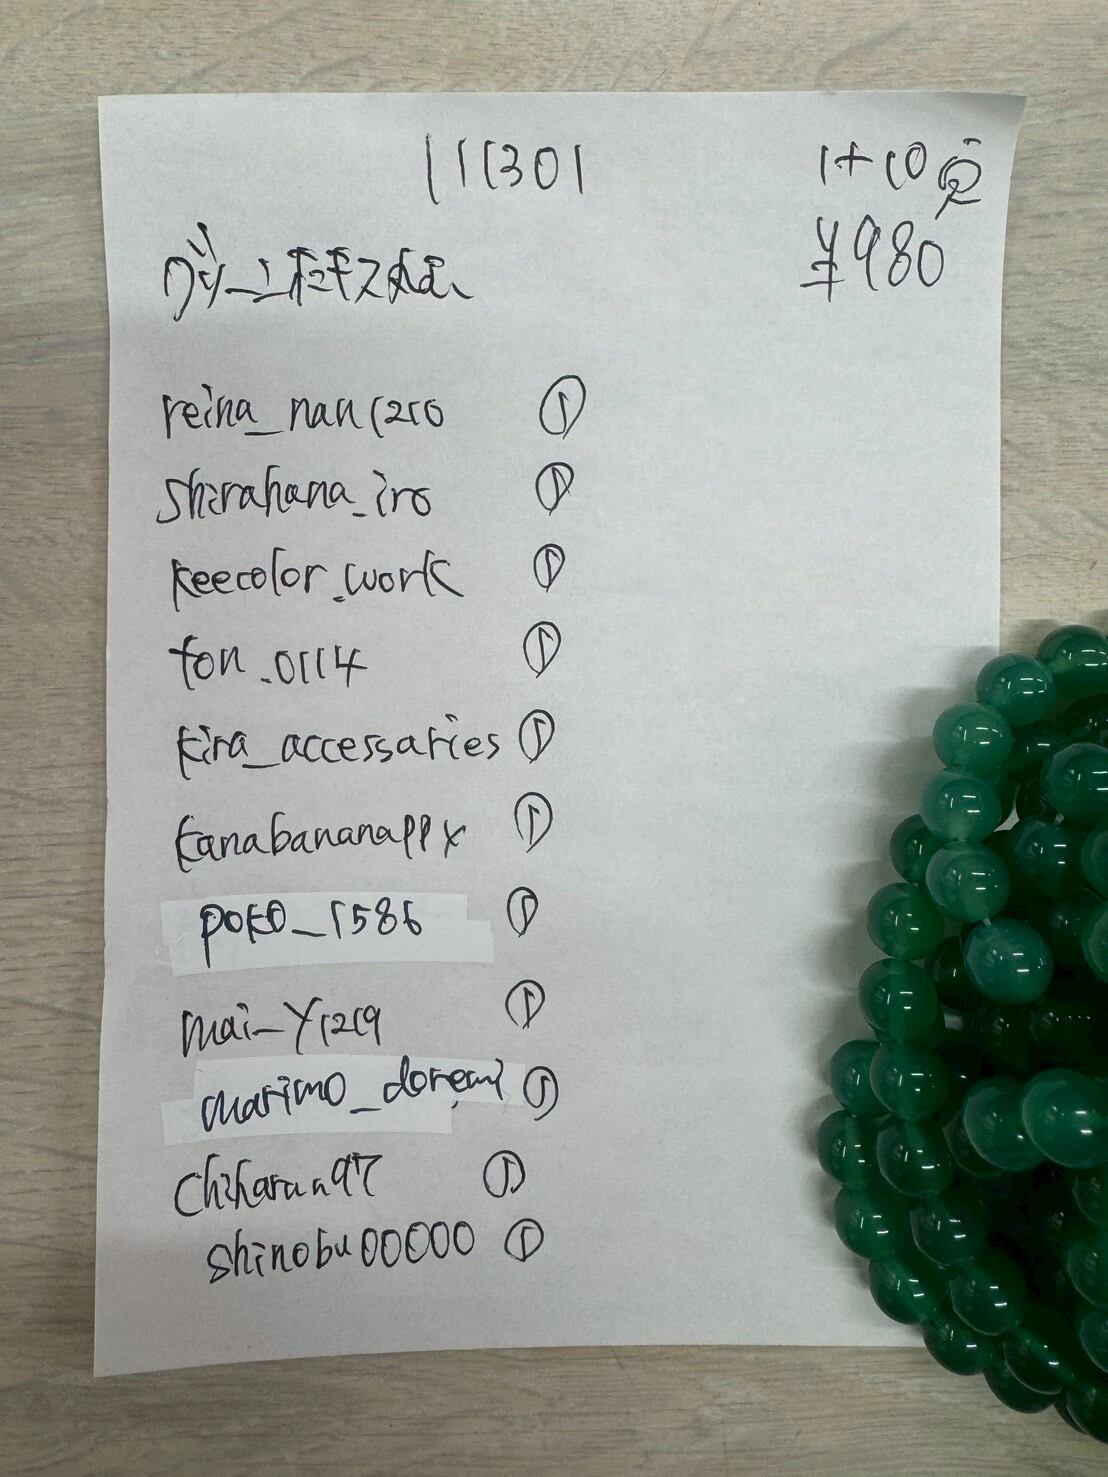 111301
1+10
¥980
reina_nan1210
shirahana_iro ①
keecolor_work ①
ton_0114 ①
kira_accessaries ①
kanabananappx ①
poko_1586 ①
mai_y1219 ①
marimo_doremi ①
chiharun97 ①
shinobu00000 ①